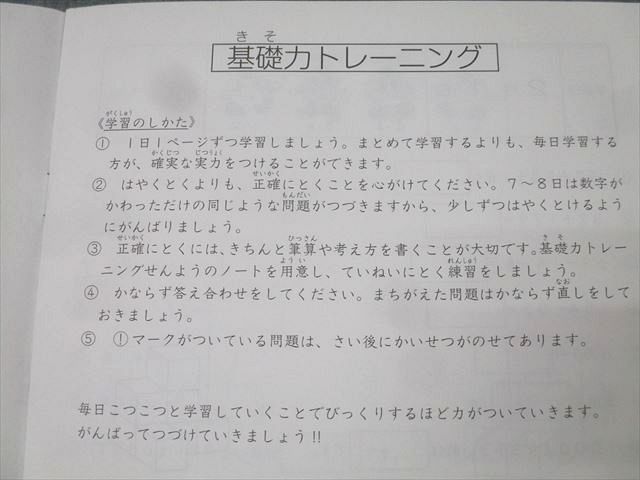 基礎力トレーニング
《学習のしかた》
① 1日1ページずつ学習しましょう。まとめて学習するよりも、毎日学習する
方が、確実な実力をつけることができます。
② はやくとくよりも、正確にとくことを心がけてください。7〜8日は数字が
かわっただけの同じような問題がつづきますから、少しずつはやくとけるよう
にがんばりましょう。
③ 正確にとくには、きちんと筆算や考え方を書くことが大切です。基礎力トレー
ニングせんようのノートを用意し、ていねいにとく練習をしましょう。
④ かならず答え合わせをしてください。まちがえた問題はかならず直しをして
おきましょう。
⑤ ！マークがついている問題は、さい後にかいせつがのせてあります。
毎日こつこつと学習していくことでびっくりするほど力がついていきます。
がんばってつづけていきましょう!!